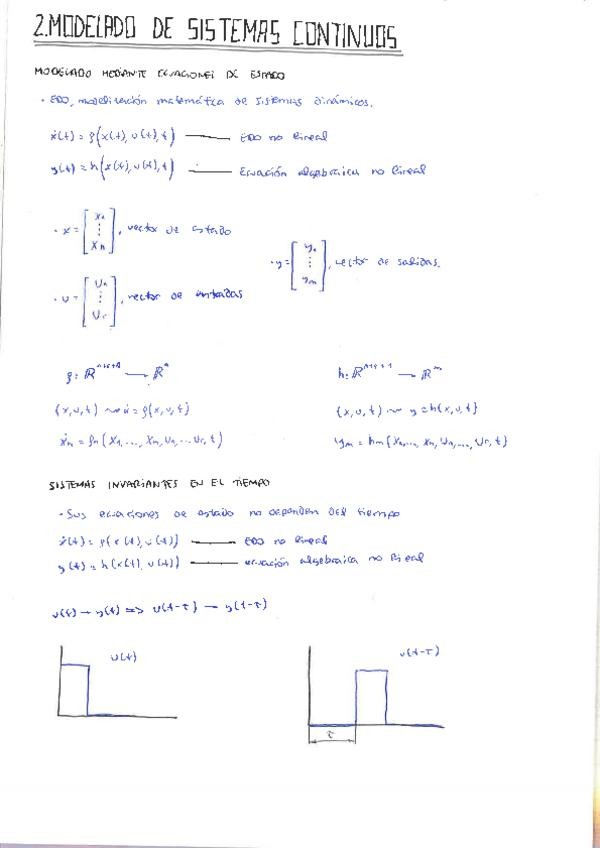 2. MODELADO DE SISTEMAS CONTINUOS
MODELADO MEDIANTE ECUACIONES DE ESTADO
· EDO, modelización matemática de sistemas dinámicos.
ẋ(t) = f(x(t), u(t), t) —— EDO no lineal
y(t) = h(x(t), u(t), t) —— Ecuación algebraica no lineal
· x = [x₁ ⋮ xₙ], vector de estado
· y = [y₁ ⋮ yₘ], vector de salidas.
· u = [u₁ ⋮ uᵣ], vector de entradas
f: ℝⁿ⁺ʳ⁺¹ → ℝⁿ
h: ℝⁿ⁺ʳ⁺¹ → ℝᵐ
(x, u, t) ⇝ ẋ = f(x, u, t)
(x, u, t) ⇝ y = h(x, u, t)
ẋₙ = fₙ(x₁, ..., xₙ, u₁, ..., uᵣ, t)
yₘ = hₘ(x₁, ..., xₙ, u₁, ..., uᵣ, t)
SISTEMAS INVARIANTES EN EL TIEMPO
· Sus ecuaciones de estado no dependen del tiempo
ẋ(t) = f(x(t), u(t)) —— EDO no lineal
y(t) = h(x(t), u(t)) —— ecuación algebraica no lineal
u(t) → y(t) => u(t-τ) → y(t-τ)
u(t)
u(t-τ)
τ